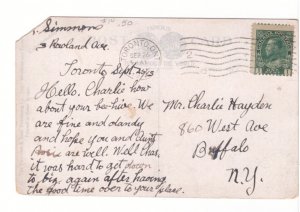 $10.50
Simmons
3 Rowland Ave.
POST CARD
TORONTO, ONT.
Toronto Sept 20/13
Hello. Charlie how
about your bee-hive. We
are fine and dandy
and hope you and Aunt
are well. Well Chas,
it was hard to get down
to biz again after having
the good time over to your place.
Mr. Charlie Hayden
860 West Ave
Buffalo
N.Y.